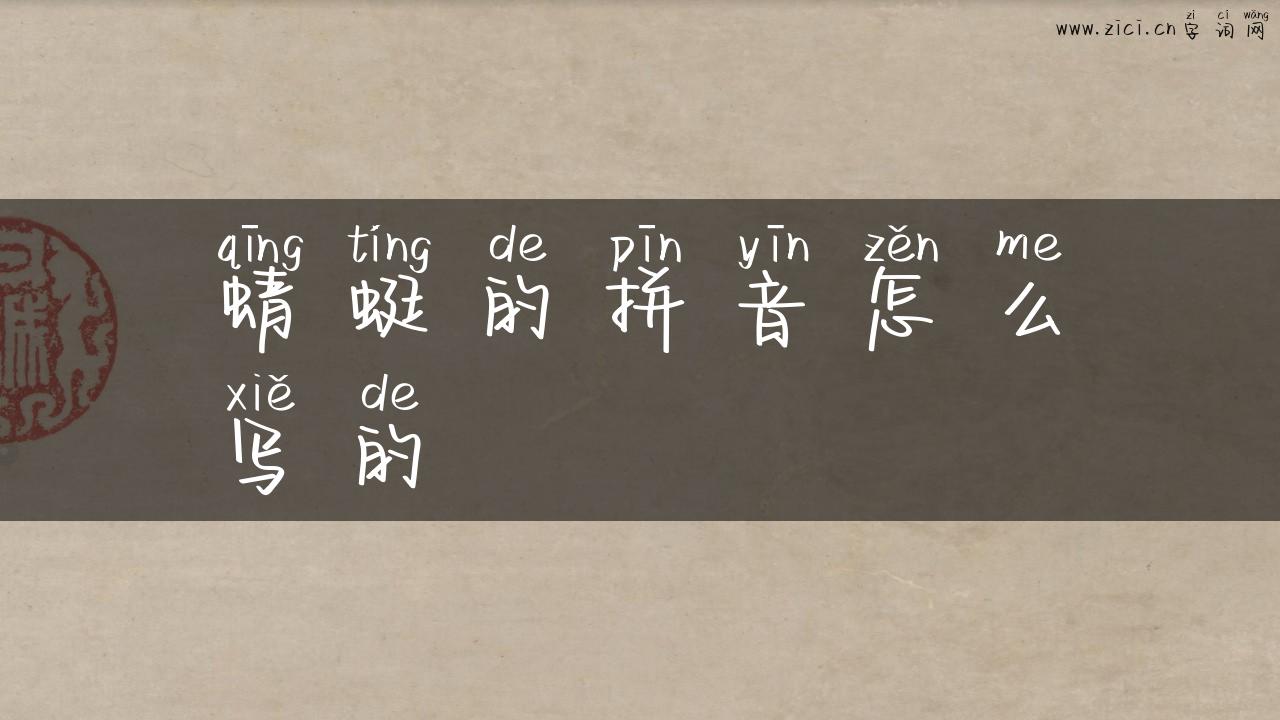 zì cí wǎng
www.zici.cn字词网
qīng tíng de pīn yīn zěn me
蜻蜓的拼音怎么
xiě de
写的